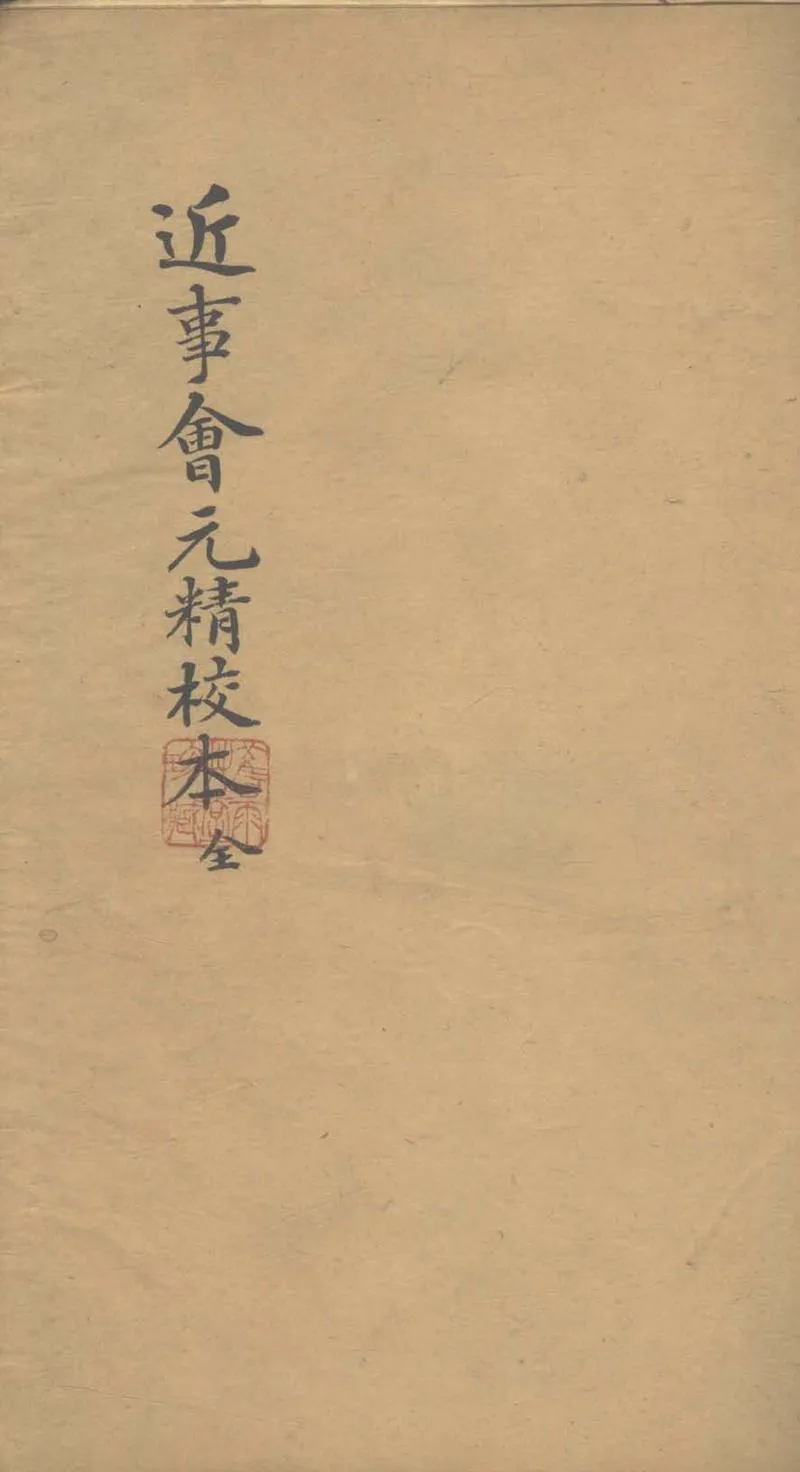 近事會元精校本全